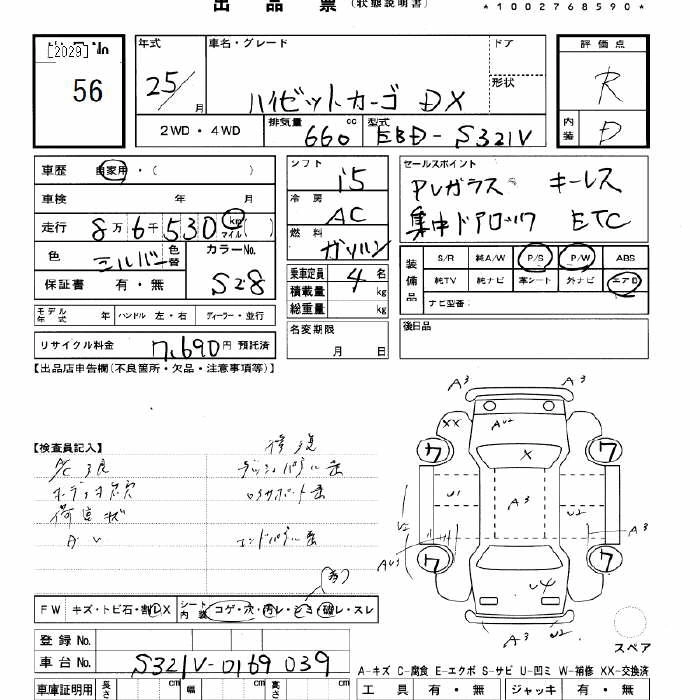 出品票(状態説明書)
*1002768590*
[2029]
No
56
年式
25/
月
車名・グレード
ハイゼットカーゴ DX
ドア
形状
評価点
R
内装
D
2WD・4WD
排気量
660
cc
型式
EBD-S321V
車歴
自家用・( )
車検 年 月
走行 8万6千530
km
マイル
( )
色 シルバー
色替
カラーNo.
S28
保証書 有・無
シフト
i5
冷房
AC
燃料
ガソリン
乗車定員 4 名
積載量 kg
総重量 kg
セールスポイント
PVガラス キーレス
集中ドアロック ETC
装備品
S/R 純A/W P/S P/W ABS
純TV 純ナビ 革シート 外ナビ エアB
ナビ型番:
モデル年式 年 ハンドル 左・右 ディーラー・並行
名変期限
月 日
後日品
リサイクル料金 7,690円 預託済
【出品店申告欄(不良箇所・欠品・注意事項等)】
【検査員記入】
修復
A3 A3
XX AU2
ワ ワ
X
U1 A3 U2
V2 A3
ワ ワ
U4
A3 U2
FW キズ・トビ石・割レX
シート
内装
コゲ・穴・汚レ・シミ・破レ・スレ
登録No.
車台No. S321V-0169039
スペア
A-キズ C-腐食 E-エクボ S-サビ U-凹ミ W-補修 XX-交換済
車庫証明用 長さ cm 幅 cm 高さ cm
工具 有・無 ジャッキ 有・無